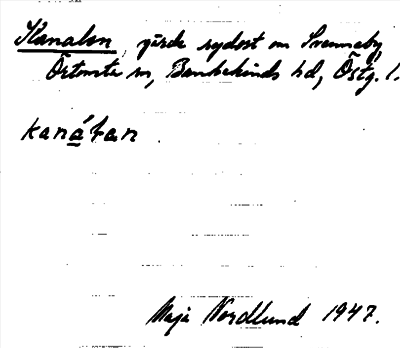 Kanalen, gärde sydost om Svenneby,
Örtomta sn, Bankekinds hd, Östg. l.
kaná̱lan.
Maja Nordlund 1947.